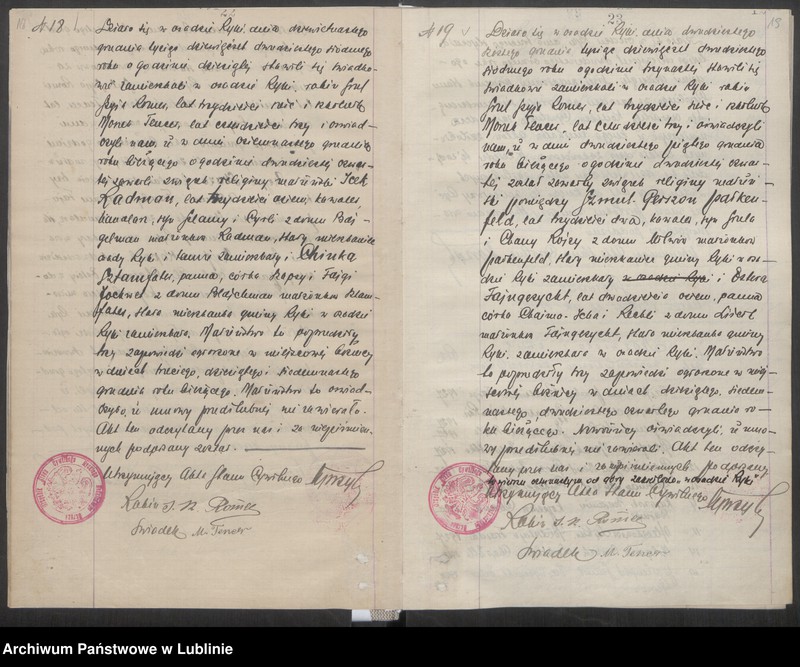 № 18
Działo się w osadzie Ryki, dnia dziewiętnastego
grudnia tysiąc dziewięćset dwudziestego siódmego
roku o godzinie dziesiątej stawili się świadko-
wie zamieszkali w osadzie Ryki, rabin Srul
Szyja Romer, lat trzydzieści i szkolnik
Morek Tencer, lat czterdzieści trzy i oświad-
czyli nam, iż w dniu osiemnastego grudnia
roku bieżącego o godzinie dwudziestej
zawarli związek religijny małżeński Icek
Radman, lat trzydzieści osiem, kawaler,
syn Szlamy i Cyrli z domu Baj-
gelman małżonków Radman, stały mieszkaniec
osady Ryki i tamże zamieszkały i Chinka
Sztamfater, panna, córka i Fajgi
z domu Blajchman małżonków Sztam-
fater, stała mieszkanka gminy Ryki w osadzie
Ryki zamieszkała. Małżeństwo to poprzedziły
trzy zapowiedzi ogłoszone w miejscowej bóżnicy
w dniach trzeciego, dziesiątego i siedemnastego
grudnia roku bieżącego. Małżeństwo to oświad-
czyło, iż umowy przedślubnej nie zawierało.
Akt ten odczytany przez nas i
podpisany został.
Utrzymujący Akta Stanu Cywilnego
Rabin S. Sz. Romer
Świadek M. Tencer
23
19
№ 19
Działo się w osadzie Ryki, dnia dwudziestego
szóstego grudnia tysiąc dziewięćset dwudziestego
siódmego roku o godzinie trzynastej stawili się
świadkowie zamieszkali w osadzie Ryki rabin
Srul Szyja Romer, lat trzydzieści i szkolnik
Morek Tencer, lat czterdzieści trzy i oświadczyli
nam, iż w dniu dwudziestego piątego grudnia
roku bieżącego o godzinie dwudziestej
został zawarty związek religijny małżeń-
ski pomiędzy Szmul Gerszon Parken-
feld, lat trzydzieści dwa, kawaler, syn Srula
i Chany Rojzy z domu małżonków
Parkenfeld, stały mieszkaniec gminy Ryki w osa-
dzie Ryki zamieszkały w osadzie Ryki i Debora
Fajngezycht, lat dwadzieścia osiem, panna
córka Chaima-Joba i Rechli z domu
małżonków Fajngezycht, stała mieszkanka gminy
Ryki, zamieszkała w osadzie Ryki. Małżeństwo
to poprzedziły trzy zapowiedzi ogłoszone w miej-
scowej bóżnicy w dniach dziesiątego, siedem-
nastego dwudziestego czwartego grudnia ro-
ku bieżącego. Nowożeńcy oświadczyli, iż umo-
wy przedślubnej nie zawierali. Akt ten odczy-
tany przez nas i podpisany
w wierszu od góry zakreślono "w osadzie Ryki"
Utrzymujący Akta Stanu Cywilnego
Rabin S. Sz. Romer
Świadek M. Tencer
Archiwum Państwowe w Lublinie